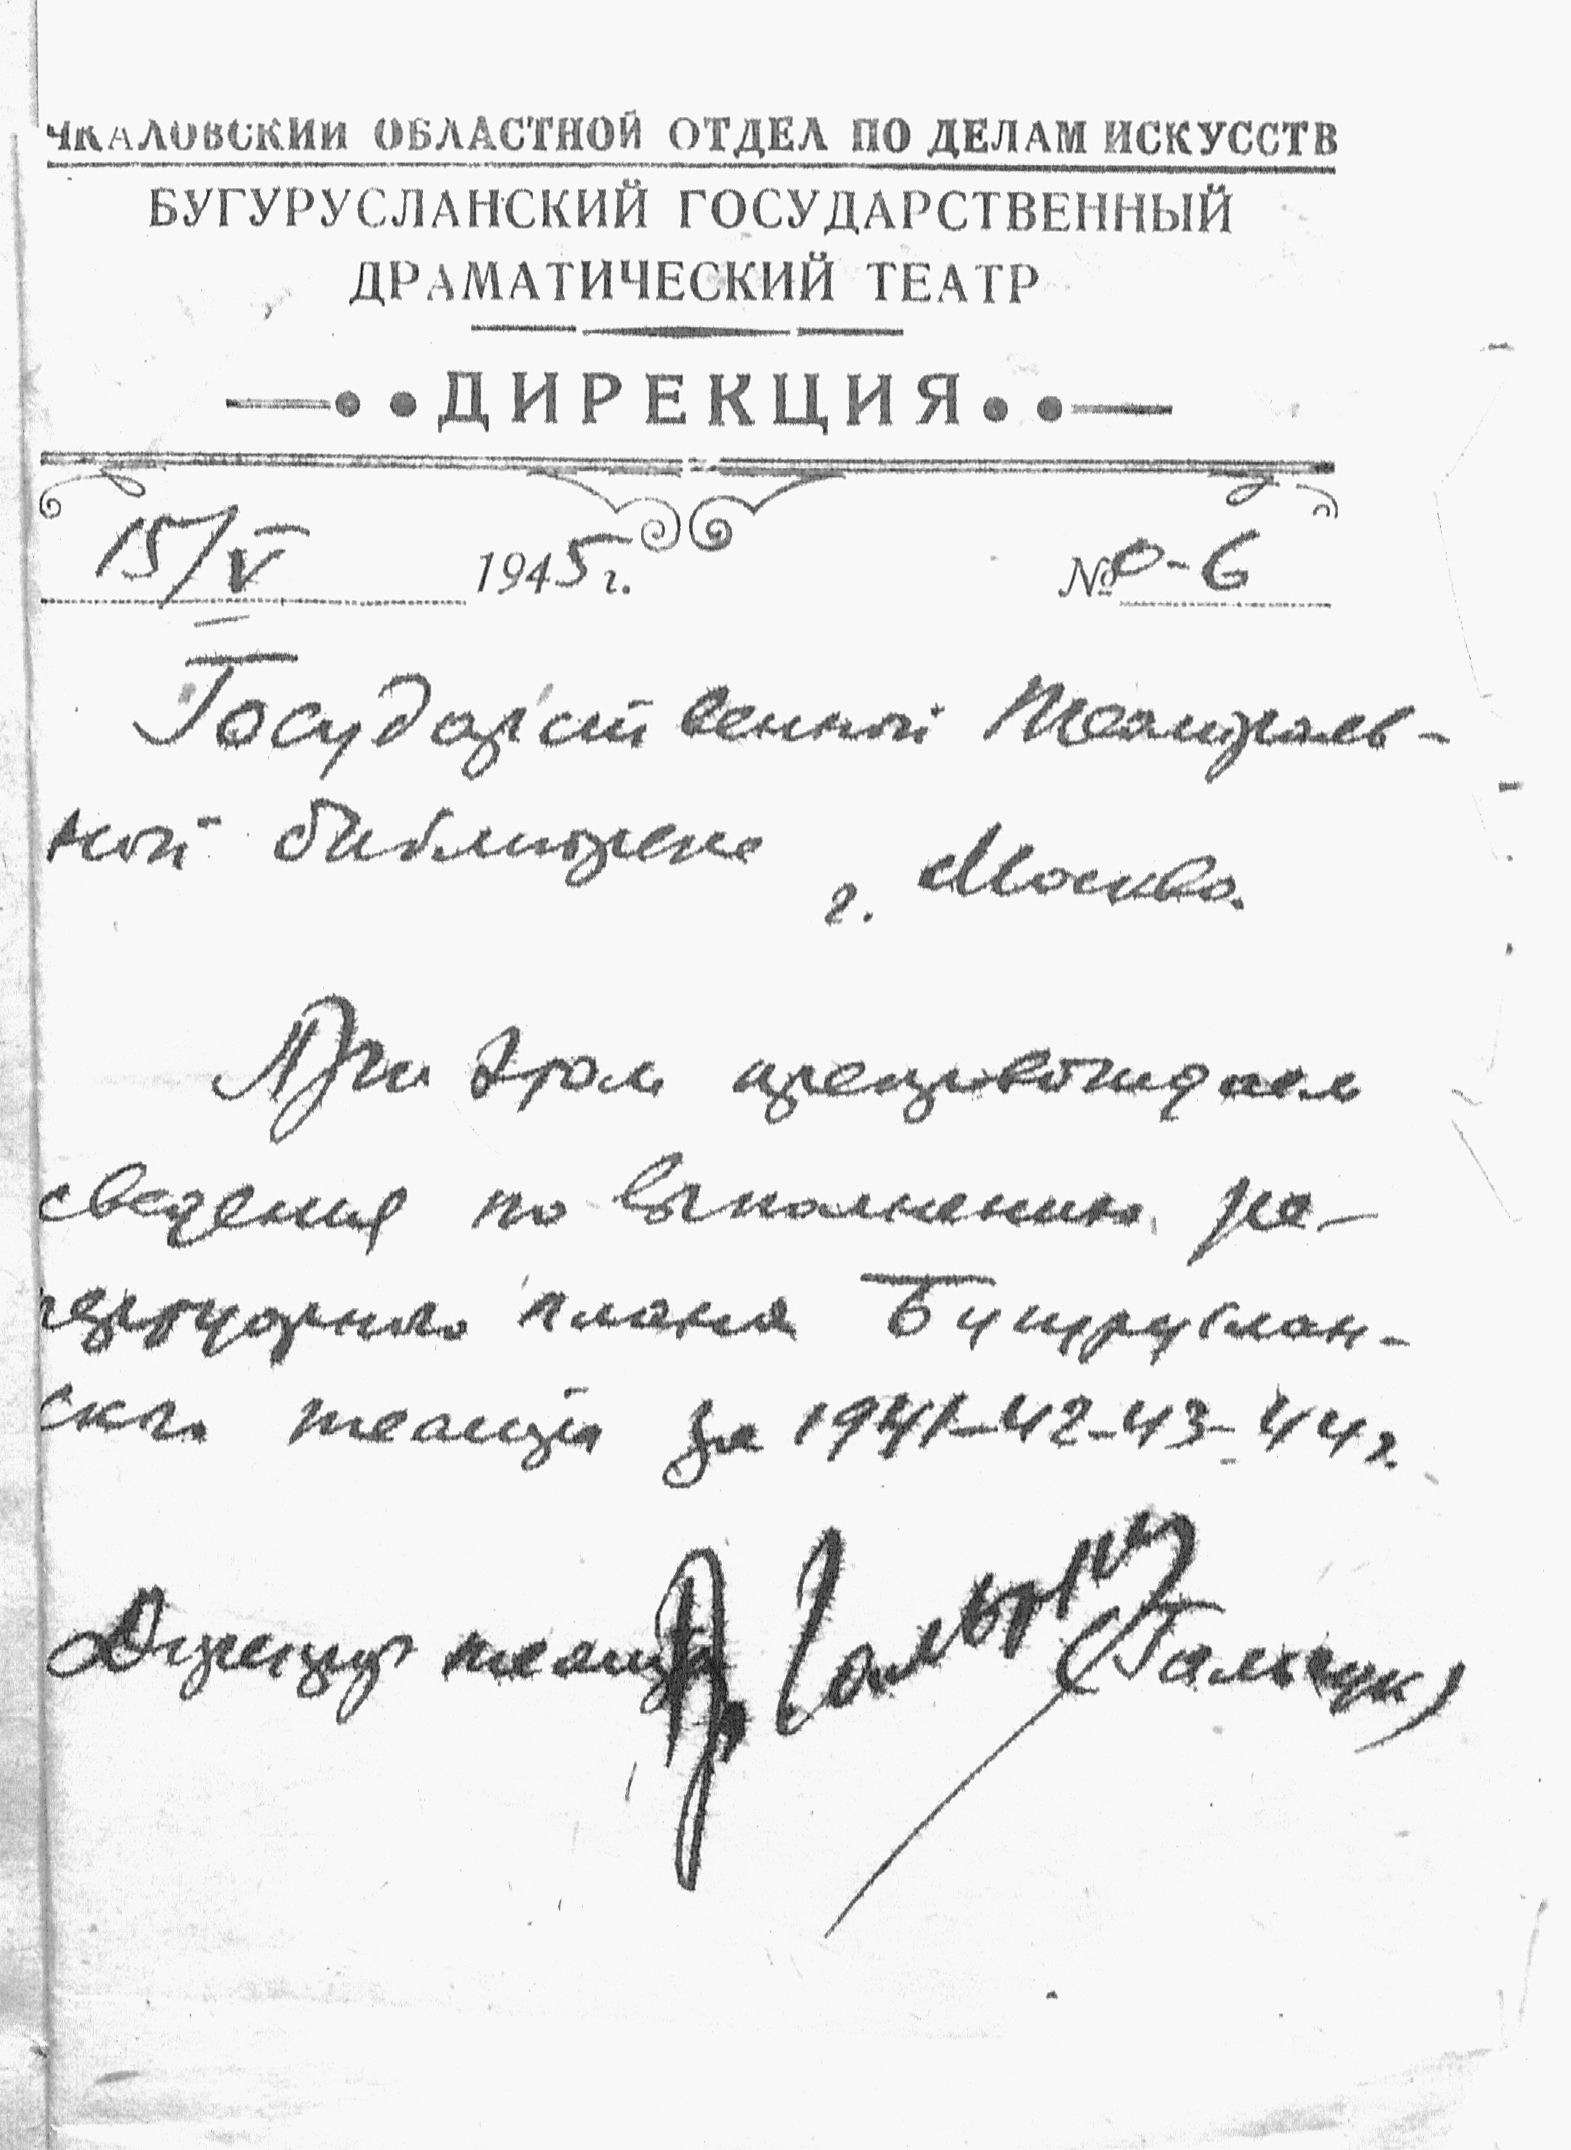 ЧКАЛОВСКИЙ ОБЛАСТНОЙ ОТДЕЛ ПО ДЕЛАМ ИСКУССТВ
БУГУРУСЛАНСКИЙ ГОСУДАРСТВЕННЫЙ
ДРАМАТИЧЕСКИЙ ТЕАТР
ДИРЕКЦИЯ
15/V 1945 г. № 0-6
Государственной Театраль-
ной библиотеке
г. Москва.
При этом препровождаем
сведения по выполнению ре-
пертуарного плана Бугуруслан-
ского театра за 1941-42-43-44 г.
Директор театра